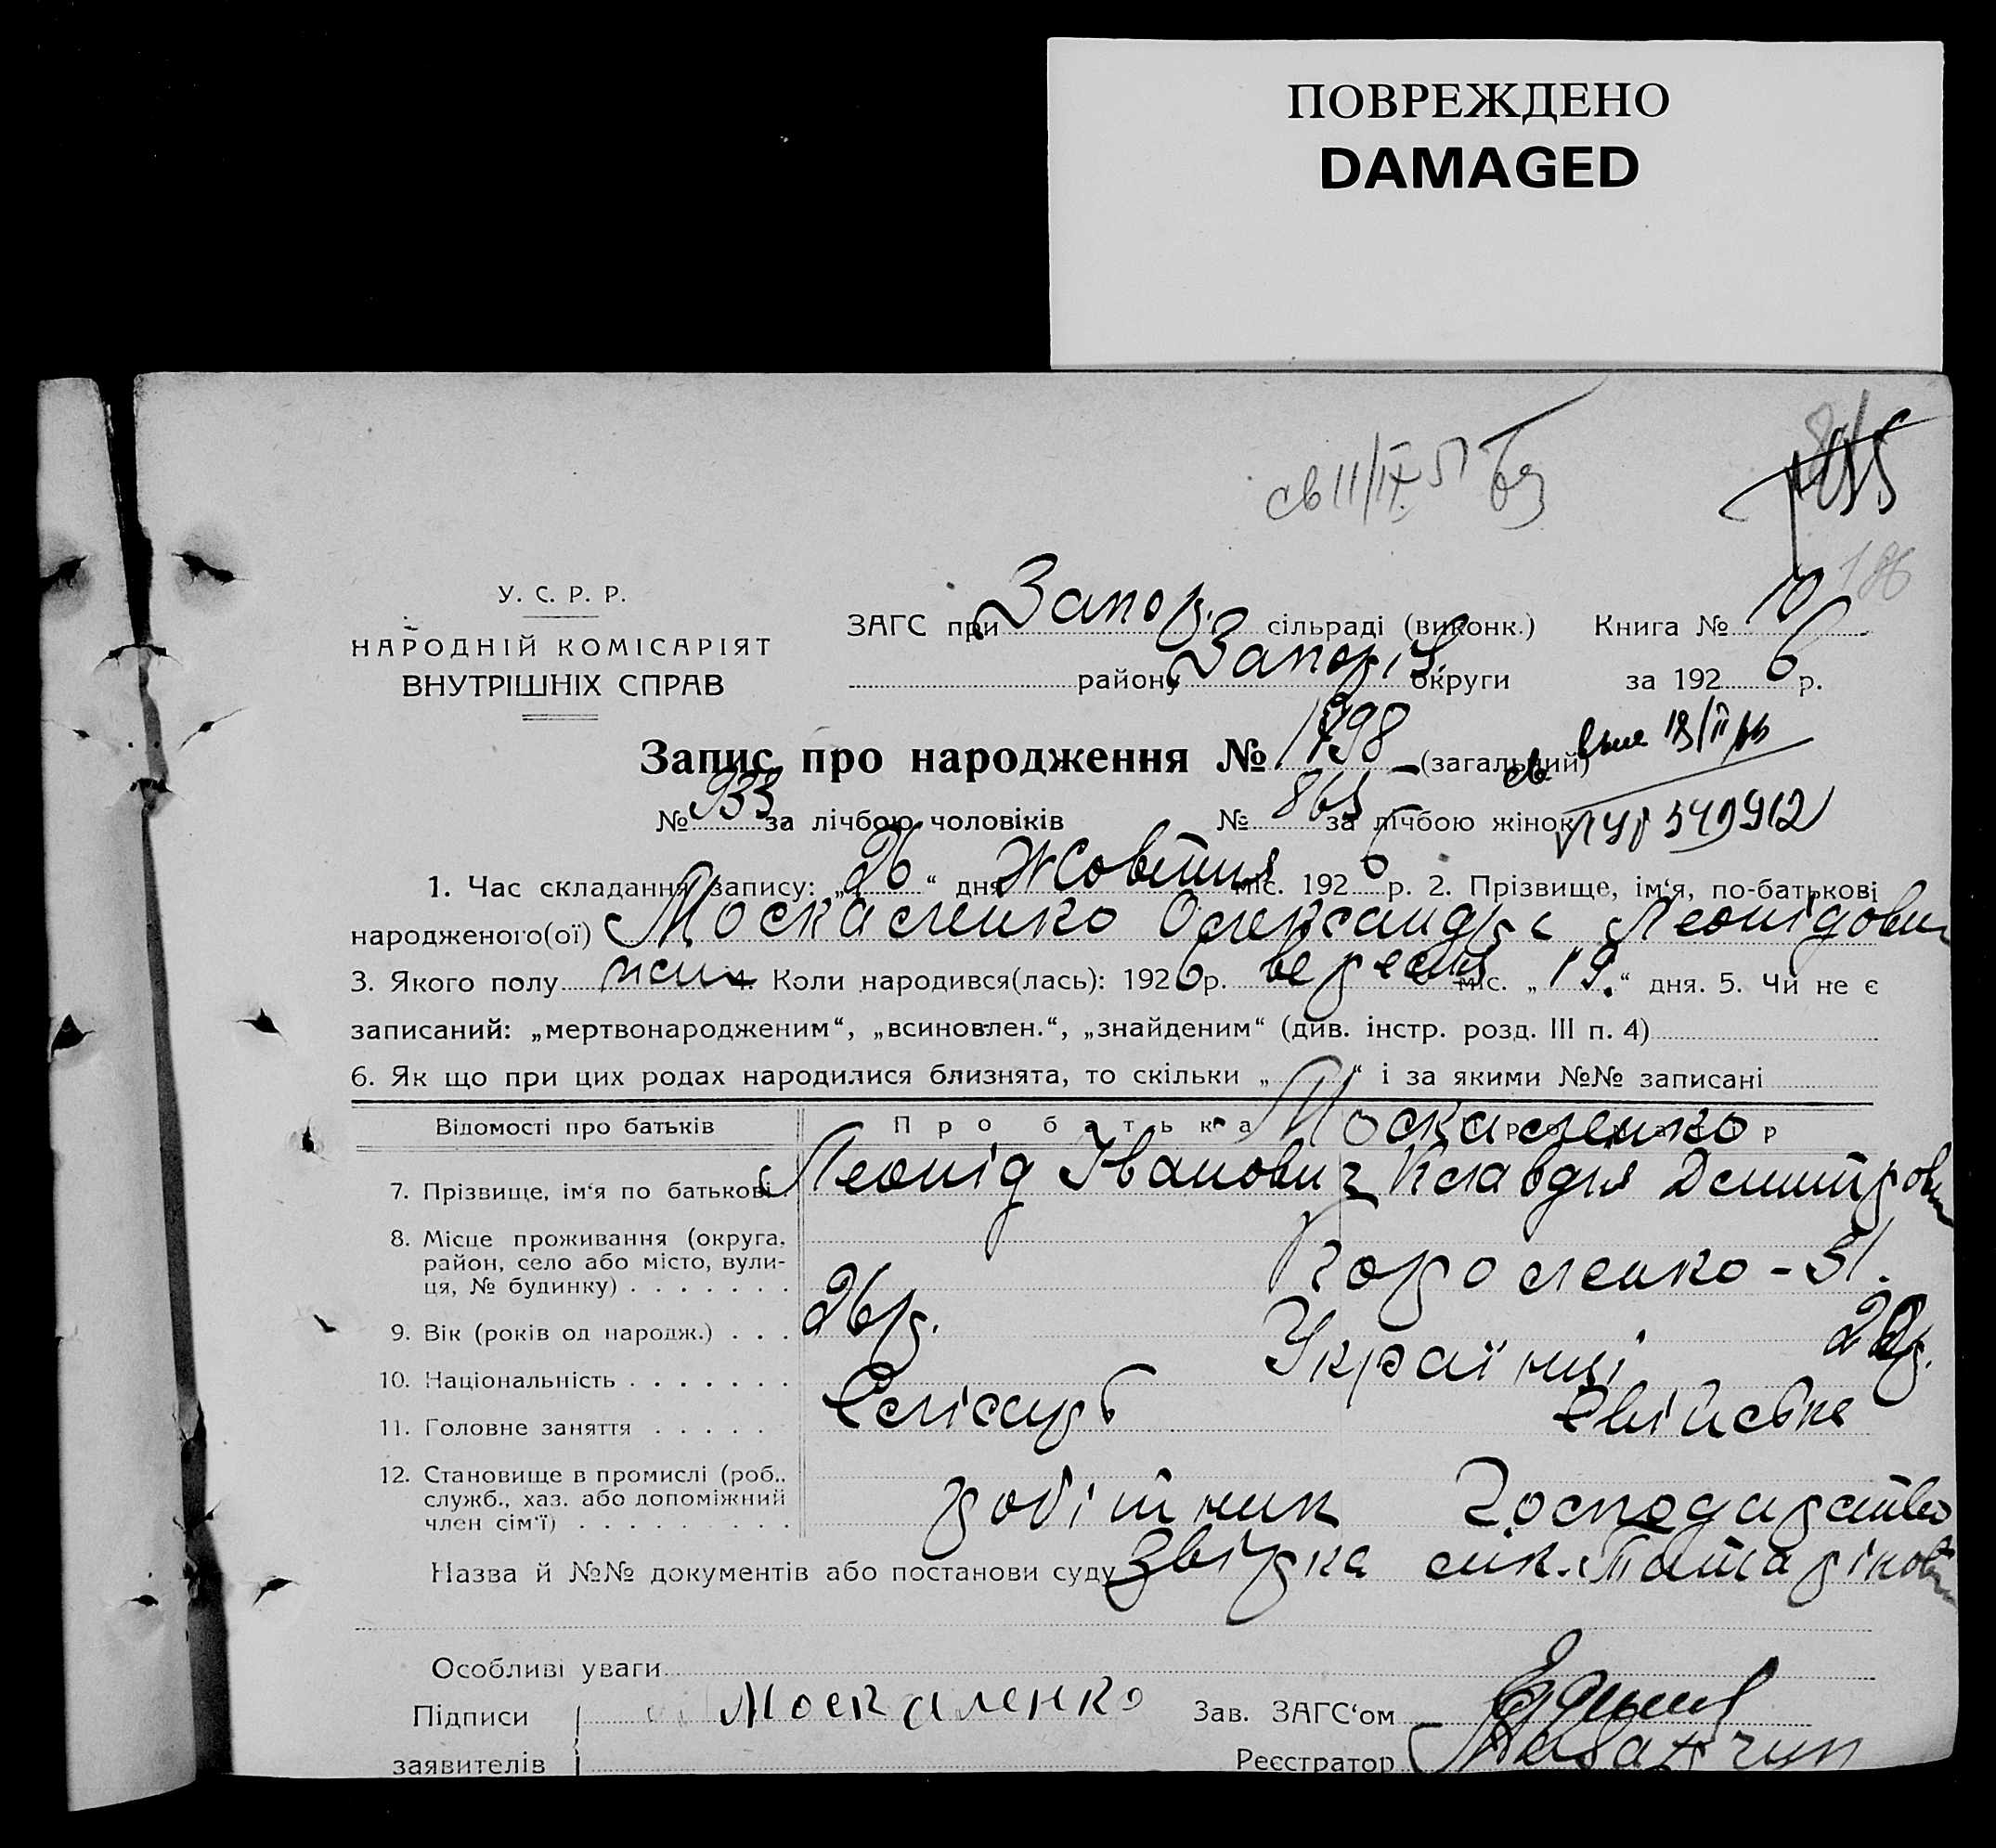 ПОВРЕЖДЕНО
DAMAGED
св 11/IX 51
186
У. С. Р. Р.
НАРОДНІЙ КОМІСАРІЯТ
ВНУТРІШНІХ СПРАВ
ЗАГС при Запор. сільраді (виконк.) Книга № 10
району Запоріз. округи за 1926 р.
Запис про народження № 1798 (загальний)
№ 933 за лічбою чоловіків № 865 за лічбою жінок
549912
1. Час складання запису: „26“ дня Жовтня міс. 1926 р. 2. Прізвище, ім‘я, по-батькові
народженого(ої) Москаленко Олександра Леонідовн
3. Якого полу жін 4. Коли народився(лась): 1926 р. вересня міс. „19.“ дня. 5. Чи не є
записаний: „мертвонародженим“, „всиновлен.“, „знайденим“ (див. інстр. розд. III п. 4)
6. Як що при цих родах народилися близнята, то скільки „ “ і за якими №№ записані
Відомості про батьків Про батька Москаленко
7. Прізвище, ім‘я по батькові Леонід Іванович Клавдія Демитровн
8. Місце проживання (округа,
район, село або місто, вули-
ця, № будинку) Короленко - 51.
9. Вік (років од народж.) 26 р.
10. Національність Українці
11. Головне заняття Слюсарь Хатйське
12. Становище в промислі (роб.,
служб., хаз. або допоміжний
член сім‘ї) робітник Господарство
Назва й №№ документів або постанови суду Звірка
Особливі уваги
Підписи Москаленко Зав. ЗАГС‘ом
заявителів Реєстратор